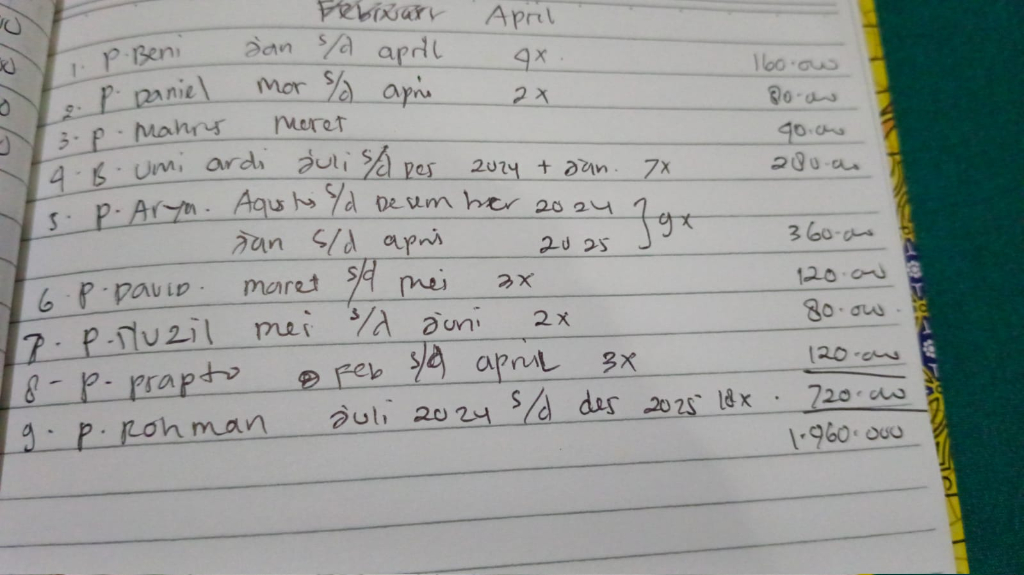 Februari April
1. P. Beni Jan s/d april 4x. 160.000
2. P. Daniel mar s/d apri 2x 80.000
3. P. Mahrus Maret 40.000
4. B. Umi ardi Juli s/d Des 2024 + Jan. 7x 280.000
5. P. Arya. Agustus s/d Desember 2024
Jan s/d apri 2025 } 9x 360.000
6. P. DAVID. maret s/d mei 3x 120.000
7. P. mei s/d Juni 2x 80.000.
8- P. prapto Feb s/d april 3x 120.000
9. P. Rohman Juli 2024 s/d des 2025 18x. 720.000
1.960.000